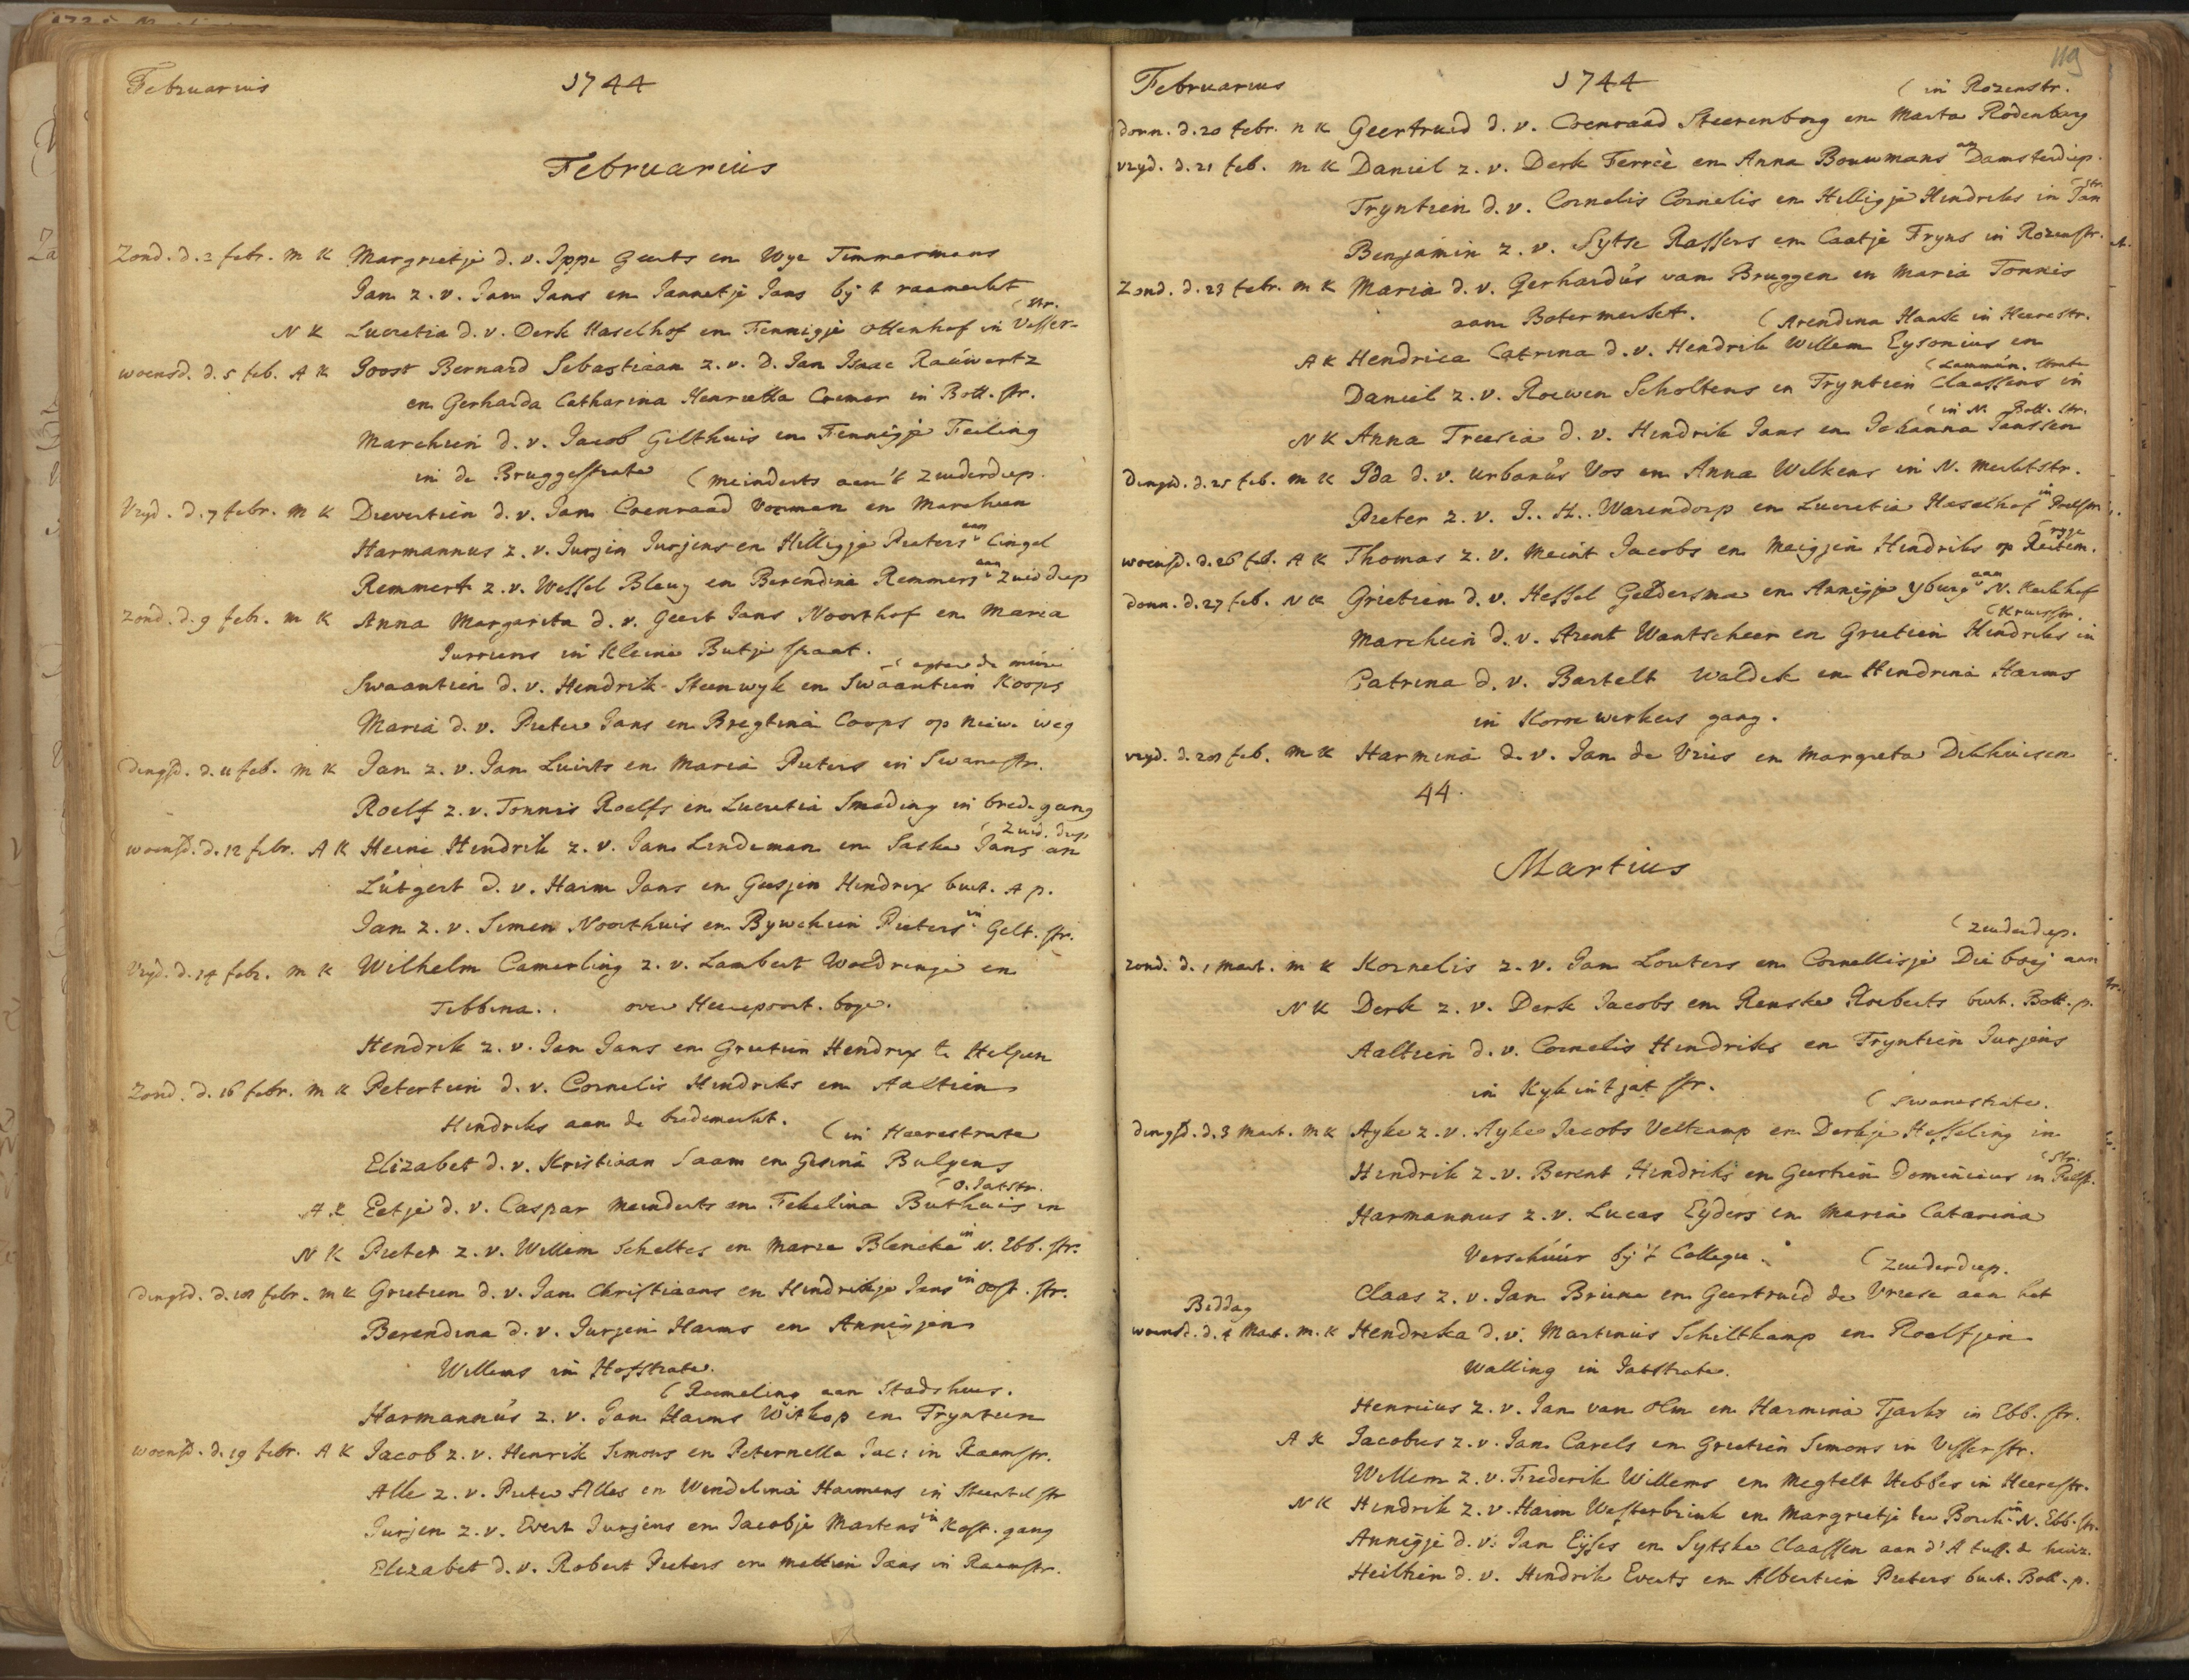 Februarius 1744
Februarius
Zond. d. 2 febr. M K Margrietje d. v. Ippe Geerts en Wye Timmermans
Jan z. v. Jan Jans en Jannetje Jans bij t raamerkt
(str.
N K Lucretia d. v. Derk Haselhof en Fennigje Ottenhof in Visser-
woensd. d. 5 feb. A K Joost Bernard Sebastiaan z. v. D. Jan Isaac Rauwertz
en Gerharda Catharina Henrietta Cremer in Bott. str.
Marchien d. v. Jacob Gilthuis en Fennigje Feiling
in de Bruggestrate (Meinderts aen 't Zuiderdiep.
Vryd. d. 7 febr. M K Dievertien d. v. Jan Coenraad Vorman en Marchien
Harmannus z. v. Jurjen Jurjens en Hilligje Pieters aan Cingel
Remmert z. v. Wessel Bleuy en Berendina Remmers aan Zuid diep
Zond. d. 9 febr. M K Anna Margarita d. v. Geert Jans Noorthof en Maria
Jurriens in Kleine Butje straat.
(agter de muire
Swaantien d. v. Hendrik Steenwyk en Swaantien Koops
Maria d. v. Pieter Jans en Bregtina Coops op nieuwe weg
dingsd. d. 11 feb. M K Jan z. v. Jan Luirts en Maria Pieters in Swanestr.
Roelf z. v. Tonnis Roelfs en Lucretia Smeding in brede gang
(Zuid. diep
woensd. d. 12 febr. A K Heine Hendrik z. v. Jan Lindeman en Saske Jans an
Lutgert d. v. Harm Jans en Geesjen Hendrix buit. A p.
Jan z. v. Simen Noorthuis en Bywchien Pieters in Gelt. str.
Vryd. d. 14 febr. M K Wilhelm Camerling z. v. Lambert Woldringe en
Tibbina.. over Heerepoort. boge.
Hendrik z. v. Jan Jans en Grietien Hendrix te Helpen
Zond. d. 16 febr. M K Petertien d. v. Cornelis Hindriks en Aaltien
Hindriks aan de bredemerkt.
(in Heerestrate
Elizabet d. v. Kristiaan Saam en Gesina Bulgens
(O. Jatstr.
A K Eetje d. v. Caspar Meinderts en Fekelina Buthuis in
N K Pieter z. v. Willem Scheltes en Maria Blencke in N. Ebb. str.
dingsd. d. 18 febr. M K Grietien d. v. Jan Christiaans en Hindrikje Jans in Oost. str.
Berendina d. v. Jurjen Harms en Annigjen
Willems in Hofstrate.
(Roemeling aan Stadshuis.
Harmannus z. v. Jan Harms Withop en Tryntien
woensd. d. 19 febr. A K Jacob z. v. Henrik Simons en Peternella Jac: in Raamstr.
Alle z. v. Pieter Alles en Wendelina Harmens in Steentilstr
Jurjen z. v. Evert Jurjens en Jacobje Martens in Kost. gang
Elizabet d. v. Robert Pieters en Mettien Jans in Raamstr.
119
Februarius 1744
(in Rozenstr.
donn. d. 20 febr. N K Geertruid d. v. Coenraad Steerenborg en Marta Rodenburg
vryd. d. 21 feb. M K Daniel z. v. Derk Ferrée en Anna Bouwmans an Damsterdiep.
(str.
Tryntien d. v. Cornelis Cornelis en Hilligje Hindriks in Jan
Benjamin z. v. Sytse Rassers en Caatje Fryns in Rozenstr.
Zond. d. 23 febr. M K Maria d. v. Gerhardus van Bruggen en Maria Tonnis
aam Botermerket.
(Arendina Haack in Heerestr.
A K Hendrica Catrina d. v. Hendrik Willem Eysonius en
(Lammun. strate
Daniel z. v. Roewen Scholtens en Tryntien Claessens in
(in N. Bott. str.
N K Anna Treesia d. v. Hindrik Jans en Johanna Janssen
Dingsd. d. 25 feb. M K Ida d. v. Urbanus Vos en Anna Wilkens in N. Merktstr.
Pieter z. v. J.. H.. Warendorp en Lucretia Haselhof in Pelstr.
(ryge
woensd. d. 26 feb. A K Thomas z. v. Meint Jacobs en Meigjen Hindriks op Reitem.
donn. d. 27 feb. N K Grietien d. v. Hessel Geldersma en Annigje Yburg aan N. Kerkhof
(Kruisstr.
Marchien d. v. Arent Wantscheer en Grietien Hindriks in
Catrina d. v. Bartelt Waldek en Hindrina Harms
in Korrewerkers gang.
vryd. d. 28 feb. M K Harmina d. v. Jan de Vries en Margreta Dikhuisen
44.
Martius
(Zuiderdiep.
zond. d. 1 Mart. M K Kornelis z. v. Jan Louters en Cornellisje Dieboej aan
N K Derk z. v. Derk Jacobs en Renske Roeberts buit. Bott. p.
Aaltien d. v. Cornelis Hindriks en Tryntien Jurjens
in Kyk in t jat str.
(Swanestrate.
dingsd. d. 3 Mart. M K Ayke z. v. Ayke Jacobs Veltcamp en Derkje Hesseling in
(Str.
Hindrik z. v. Berent Hindriks en Geertien Dominicus in Pelst.
Harmannus z. v. Lucas Eyders en Maria Catarina
Verschuur by 't Collegie.
(Zuiderdiep.
Claas z. v. Jan Bruine en Geertruid de Vriese aan het
Biddag
woensd. d. 4 Mart. M. K Hendreka d. v. Martinus Schiltkamp en Roelfjen
Walling in Jatstrate.
Henricus z. v. Jan van Olm en Harmina Tjarks in Ebb. str.
A K Jacobus z. v. Jan Carels en Grietien Simons in Visserstr.
Willem z. v. Frederik Willems en Megtelt Hebbes in Heerestr.
N K Hindrik z. v. Harm Westerbrink en Margrietje ter Borch in N. Ebb. str.
Annigje d. v. Jan Eyses en Sytske Claassen aan d' A tuss. de huiz.
Heiltien d. v. Hindrik Everts en Albertien Pieters buit. Bott. p.